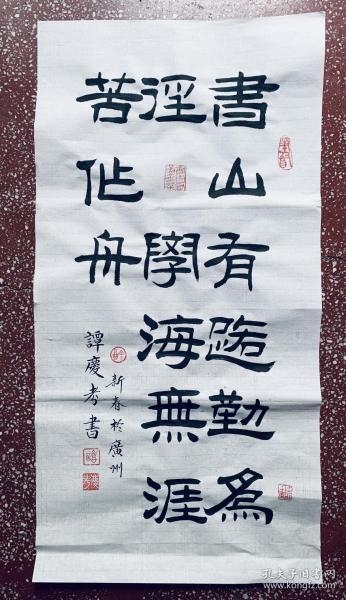 書山有路勤為
徑學海無涯
苦作舟
新春於廣州
譚慶考書
孔夫子旧书网